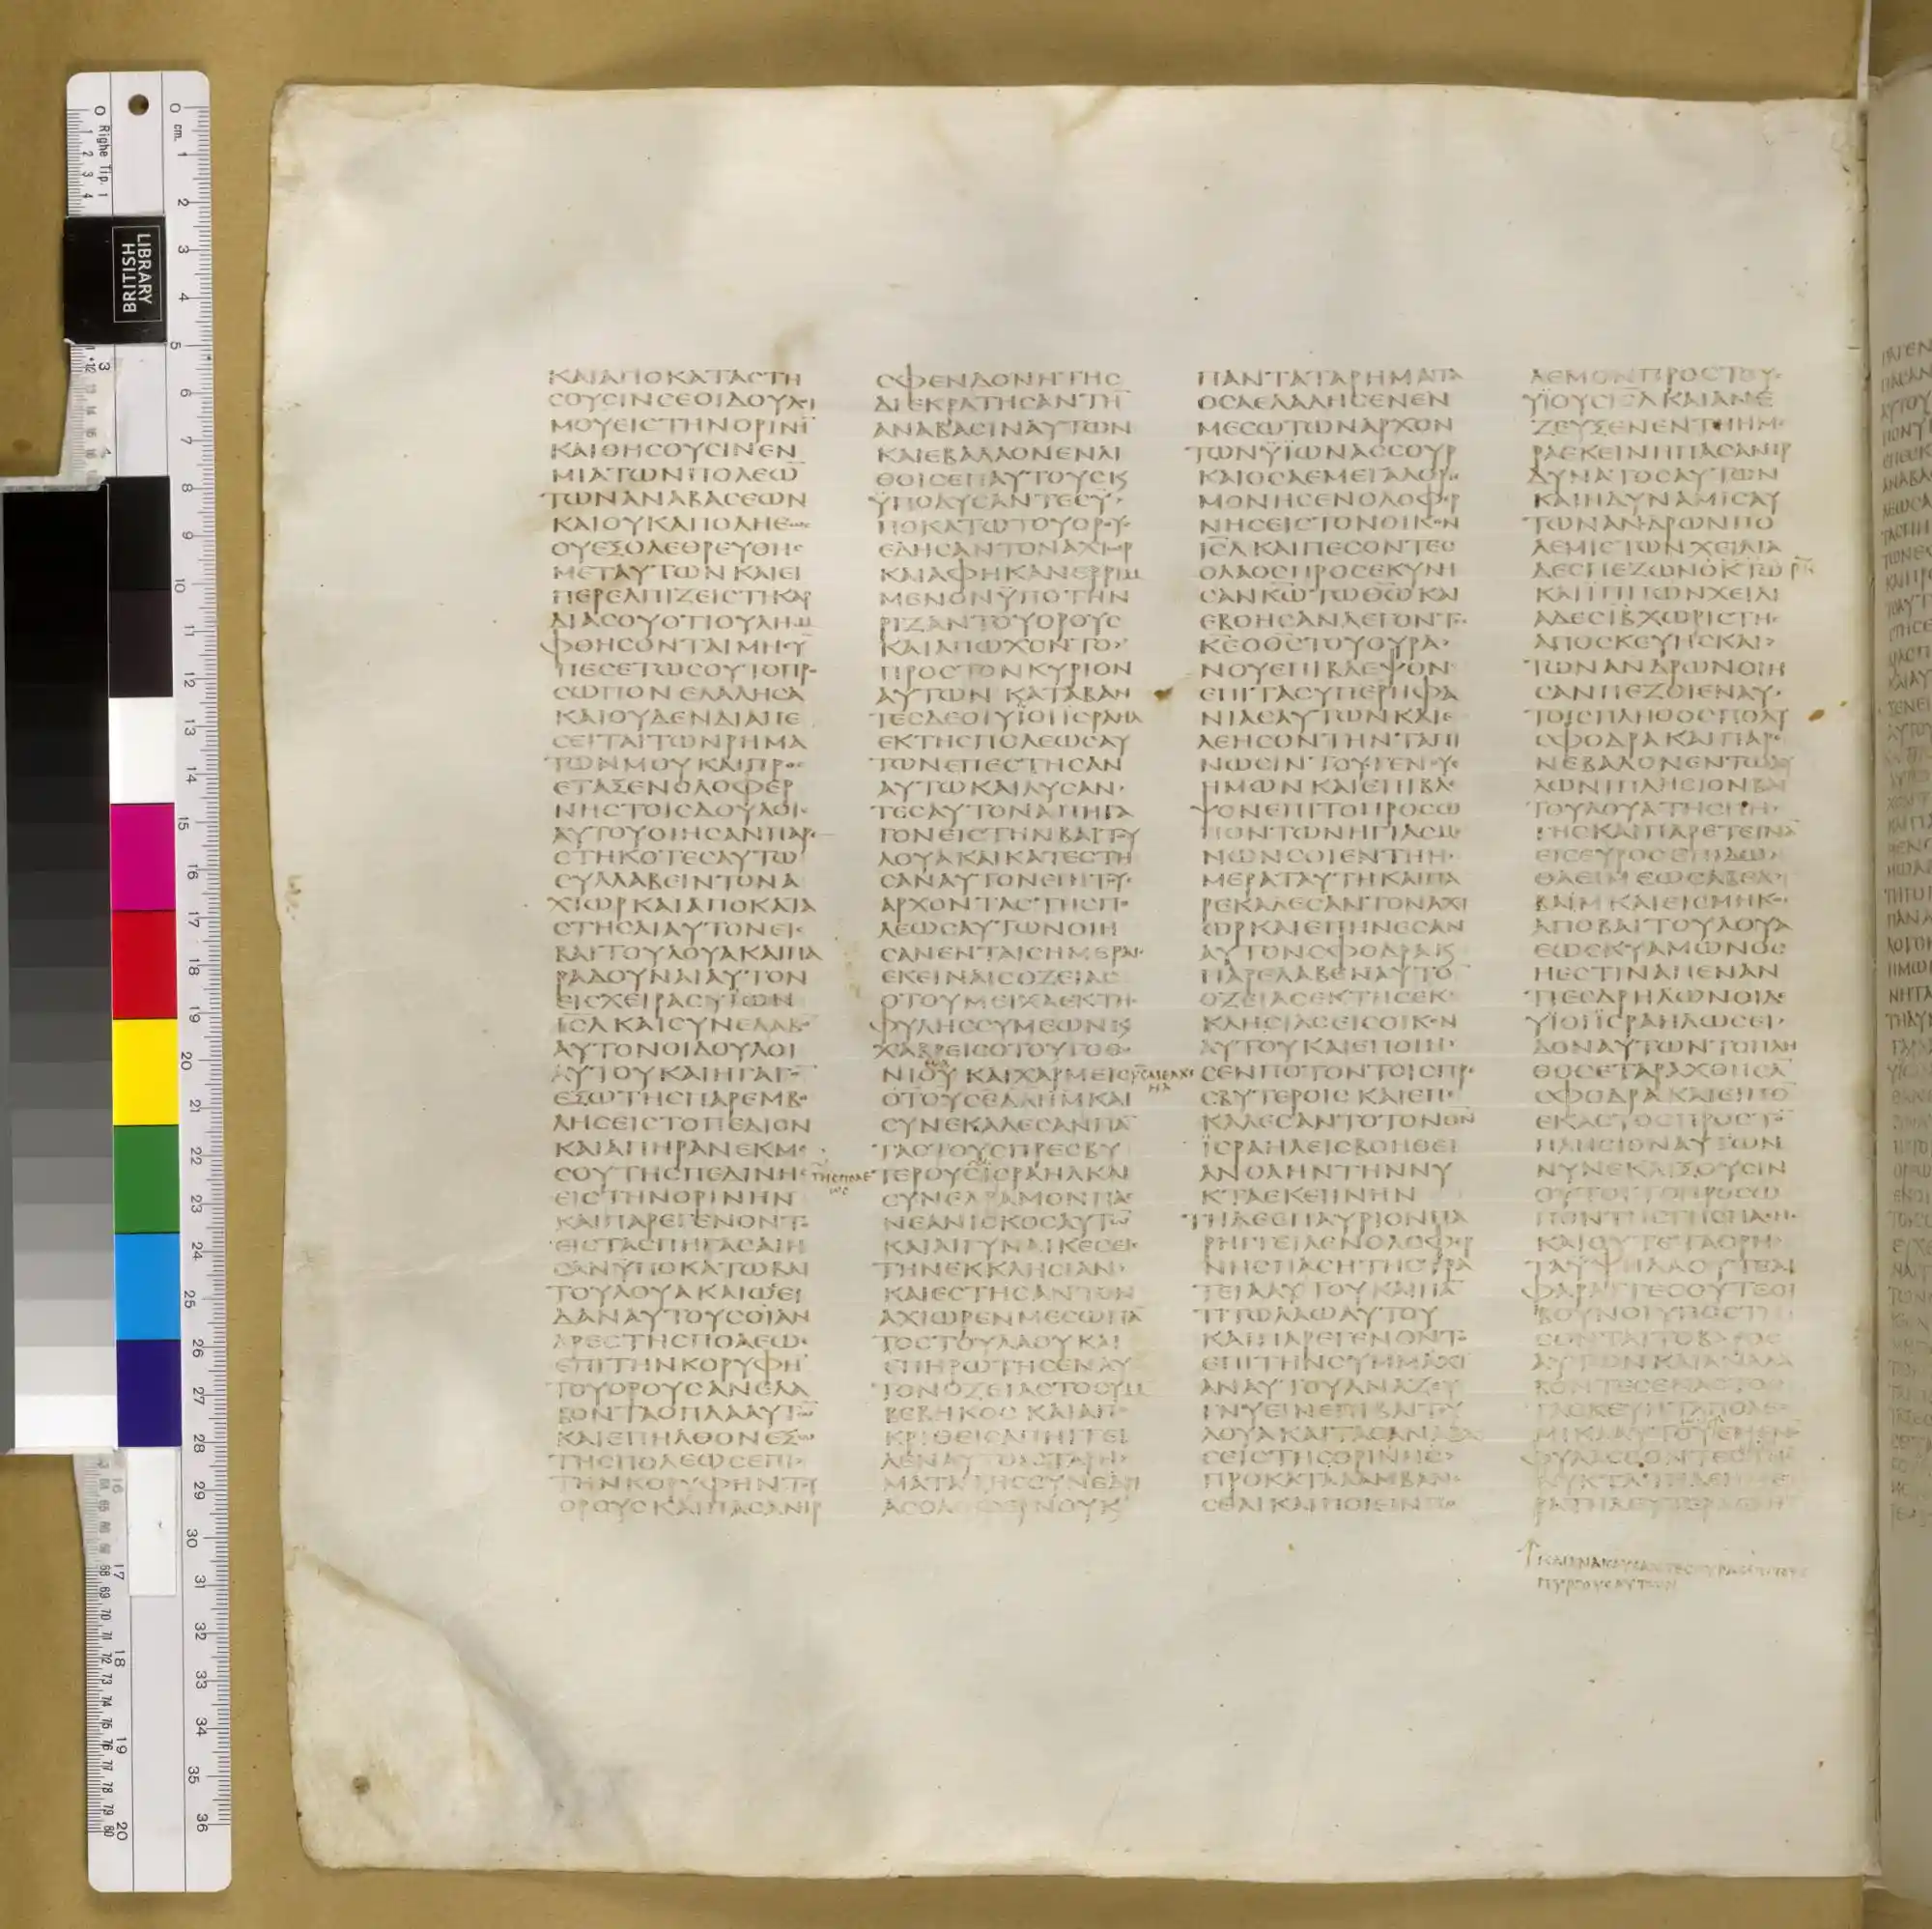 ΚΑΙΑΠΟΚΑΤΑΣΤΗ
ΣΟΥΣΙΝΣΕΟΙΔΟΥΛΟΙ
ΜΟΥΕΙΣΤΗΝΟΡΙΝΗ
ΚΑΙΘΗΣΟΥΣΙΝΕΝ
ΜΙΑΤΩΝΠΟΛΕΩ̅
ΤΩΝΑΝΑΒΑΣΕΩΝ
ΚΑΙΟΥΚΑΠΟΛΗΕωσ
ΟΥΕΞΟΛΕΘΡΕΥΘΗΣ
ΜΕΤΑΥΤΩΝΚΑΙΕΙ
ΠΕΡΕΛΠΙΖΕΙΣΤΗΚΑΡ
ΔΙΑΣΟΥΟΤΙΟΥΛΗΜ
ΦΘΗΣΟΝΤΑΙΜΗΣΥ
ΠΕΣΕΤΩΣΟΥΤΟΠΡΟ
ΣΩΠΟΝΕΛΑΛΗΣΑ
ΚΑΙΟΥΔΕΝΔΙΑΠΕ
ΣΕΙΤΑΙΤΩΝΡΗΜΑ
ΤΩΝΜΟΥΚΑΙΠΡΟΣ
ΕΤΑΞΕΝΟΛΟΦΕΡ
ΝΗΣΤΟΙΣΔΟΥΛΟΙΣ
ΑΥΤΟΥΟΙΗΣΑΝΠΑΡΕ
ΣΤΗΚΟΤΕΣΑΥΤΩ
ΣΥΛΛΑΒΕΙΝΤΟΝΑ
ΧΙΩΡΚΑΙΑΠΟΚΑΤΑ
ΣΤΗΣΑΙΑΥΤΟΝΕΙΣ
ΒΑΙΤΟΥΛΟΥΑΚΑΙΠΑ
ΡΑΔΟΥΝΑΙΑΥΤΟΝ
ΕΙΣΧΕΙΡΑΣΥΙΩΝ
Ι̅Σ̅Λ̅ΚΑΙΣΥΝΕΛΑΒΟ
ΑΥΤΟΝΟΙΔΟΥΛΟΙ
ΑΥΤΟΥΚΑΙΗΓΑΓΟ̅
ΕΞΩΤΗΣΠΑΡΕΜΒΟ
ΛΗΣΕΙΣΤΟΠΕΔΙΟΝ
ΚΑΙΑΠΗΡΑΝΕΚΜΕ
ΣΟΥΤΗΣΠΕΔΙΝΗΣ ΤΗΣΠΟΛΕ
ΩΣ
ΕΙΣΤΗΝΟΡΙΝΗΝ
ΚΑΙΠΑΡΕΓΕΝΟΝΤΟ
ΕΙΣΤΑΣΠΗΓΑΣΑΙΗ
ΣΑΝΥΠΟΚΑΤΩΒΑΙ
ΤΟΥΛΟΥΑΚΑΙΩΣΕΙ
ΔΑΝΑΥΤΟΥΣΟΙΑΝ
ΔΡΕΣΤΗΣΠΟΛΕΩΣ
ΕΠΙΤΗΝΚΟΡΥΦΗ̅
ΤΟΥΟΡΟΥΣΑΝΕΛΑ
ΒΟΝΤΑΟΠΛΑΑΥΤΩ̅
ΚΑΙΕΠΗΛΘΟΝΕΞΩ
ΤΗΣΠΟΛΕΩΣΕΠΙ
ΤΗΝΚΟΡΥΦΗΝΤΟΥ
ΟΡΟΥΣΚΑΙΠΑΣΑΝΗΡ
ΣΦΕΝΔΟΝΗΤΗΣ
ΔΙΕΚΡΑΤΗΣΑΝΤΗ̅
ΑΝΑΒΑΣΙΝΑΥΤΩΝ
ΚΑΙΕΒΑΛΛΟΝΕΝΛΙ
ΘΟΙΣΕΠΑΥΤΟΥΣΚ
ΥΠΟΛΥΣΑΝΤΕΣΥ
ΠΟΚΑΤΩΤΟΥΟΡΟΥΣ
ΕΔΗΣΑΝΤΟΝΑΧΙΩΡ
ΚΑΙΑΦΗΚΑΝΕΡΡΙΜ
ΜΕΝΟΝΥΠΟΤΗΝ
ΡΙΖΑΝΤΟΥΟΡΟΥΣ
ΚΑΙΑΠΩΧΟΝΤΟ
ΠΡΟΣΤΟΝΚΥΡΙΟΝ
ΑΥΤΩΝΚΑΤΑΒΑΝ
ΤΕΣΔΕΟΙΥΙΟΙΙΣΡΑΗΛ
ΕΚΤΗΣΠΟΛΕΩΣΑΥ
ΤΩΝΕΠΕΣΤΗΣΑΝ
ΑΥΤΩΚΑΙΛΥΣΑΝ
ΤΕΣΑΥΤΟΝΑΠΗΓΑ
ΓΟΝΕΙΣΤΗΝΒΑΙΤΥ
ΛΟΥΑΚΑΙΚΑΤΕΣΤΗ
ΣΑΝΑΥΤΟΝΕΠΙΤΟΥΣ
ΑΡΧΟΝΤΑΣΤΗΣΠΟ
ΛΕΩΣΑΥΤΩΝΟΙΗ
ΣΑΝΕΝΤΑΙΣΗΜΕΡΑΙΣ
ΕΚΕΙΝΑΙΣΟΖΕΙΑΣ
ΟΤΟΥΜΕΙΧΑΕΚΤΗΣ
ΦΥΛΗΣΣΥΜΕΩΝΚ
ΧΑΒΡΕΙΣΟΤΟΥΓΟΘΟ
ΝΙΟΥΚΑΙΧΑΡΜΕΙΣ
ΟΤΟΥΣΕΛΛΗΜΚΑΙ
ΣΥΝΕΚΑΛΕΣΑΝΠΑ̅
ΤΑΣΤΟΥΣΠΡΕΣΒΥ
ΤΕΡΟΥΣΙΣΡΑΗΛΚΑΙ
ΣΥΝΕΔΡΑΜΟΝΠΑΣ
ΝΕΑΝΙΣΚΟΣΑΥΤΩ̅
ΚΑΙΑΙΓΥΝΑΙΚΕΣΕΙΣ
ΤΗΝΕΚΚΛΗΣΙΑΝ
ΚΑΙΕΣΤΗΣΑΝΤΟΝ
ΑΧΙΩΡΕΝΜΕΣΩΠΑ̅
ΤΟΣΤΟΥΛΑΟΥΚΑΙ
ΕΠΗΡΩΤΗΣΕΝΑΥ
ΤΟΝΟΖΕΙΑΣΤΟΣΥΜ
ΒΕΒΗΚΟΣΚΑΙΑΠΟ
ΚΡΙΘΕΙΣΑΠΗΓΓΕΙ
ΛΕΝΑΥΤΟΙΣΤΑΡΗ
ΜΑΤΑΤΗΣΣΥΝΕΔΡΙ
ΠΑΝΤΑΤΑΡΗΜΑΤΑ
ΟΣΑΕΛΑΛΗΣΕΝΕΝ
ΜΕΣΩΤΩΝΑΡΧΟΝ
ΤΩΝΥΙΩΝΑΣΣΟΥΡ
ΚΑΙΟΣΑΕΜΕΓΑΛΟΡ
ΜΟΝΗΣΕΝΟΛΟΦΕΡ
ΝΗΣΕΙΣΤΟΝΟΙΚΟΝ
Ι̅Σ̅Λ̅ΚΑΙΠΕΣΟΝΤΕΣ
ΟΛΑΟΣΠΡΟΣΕΚΥΝΗ
ΣΑΝΚ̅Ω̅ΤΩΘ̅Ω̅ΚΑΙ
ΕΒΟΗΣΑΝΛΕΓΟΝΤΕΣ
Κ̅Ε̅ΟΘ̅Σ̅ΤΟΥΟΥΡΑ
ΝΟΥΕΠΙΒΛΕΨΟΝ
ΕΠΙΤΑΣΥΠΕΡΗΦΑ
ΝΙΑΣΑΥΤΩΝΚΑΙΕ
ΛΕΗΣΟΝΤΗΝΤΑΠΙ
ΝΩΣΙΝΤΟΥΓΕΝΟΥΣ
ΗΜΩΝΚΑΙΕΠΙΒΛΕ
ΨΟΝΕΠΙΤΟΠΡΟΣΩ
ΠΟΝΤΩΝΗΓΙΑΣΜΕ
ΝΩΝΣΟΙΕΝΤΗΗ
ΜΕΡΑΤΑΥΤΗΚΑΙΠΑ
ΡΕΚΑΛΕΣΑΝΤΟΝΑΧΙ
ΩΡΚΑΙΕΠΗΝΕΣΑΝ
ΑΥΤΟΝΣΦΟΔΡΑΚ
ΠΑΡΕΛΑΒΕΝΑΥΤΟ̅
ΟΖΕΙΑΣΕΚΤΗΣΕΚ
ΚΛΗΣΙΑΣΕΙΣΟΙΚΟΝ
ΑΥΤΟΥΚΑΙΕΠΟΙΗ
ΣΕΝΠΟΤΟΝΤΟΙΣΠΡΕ
ΣΒΥΤΕΡΟΙΣΚΑΙΕΠΕ
ΚΑΛΕΣΑΝΤΟΤΟΝΘ̅Ν̅
ΙΣΡΑΗΛΕΙΣΒΟΗΘΕΙ
ΑΝΟΛΗΝΤΗΝΝΥ
ΚΤΑΕΚΕΙΝΗΝ
ΤΗΔΕΕΠΑΥΡΙΟΝΠΑ
ΡΗΓΓΕΙΛΕΝΟΛΟΦΕΡ
ΝΗΣΠΑΣΗΤΗΣΤΡΑ
ΤΕΙΑΑΥΤΟΥΚΑΙΠΑ̅
ΤΙΤΩΛΑΩΑΥΤΟΥ
ΚΑΙΠΑΡΕΓΕΝΟΝΤΟ
ΕΠΙΤΗΝΣΥΜΜΑΧΙ
ΑΝΑΥΤΟΥΑΝΑΖΕΥ
ΓΝΥΕΙΝΕΠΙΒΑΙΤΥ
ΛΟΥΑΚΑΙΤΑΣΑΝΑΒΑ
ΣΕΙΣΤΗΣΟΡΙΝΗΣ
ΠΡΟΚΑΤΑΛΑΜΒΑΝΕ
ΣΘΑΙΚΑΙΠΟΙΕΙΝΠΟ
ΛΕΜΟΝΠΡΟΣΤΟΥΣ
ΥΙΟΥΣΙ̅Σ̅Λ̅ΚΑΙΑΝΕ
ΖΕΥΞΕΝΕΝΤΗΗΜΕ
ΡΑΕΚΕΙΝΗΠΑΣΑΝΗΡ
ΔΥΝΑΤΟΣΑΥΤΩΝ
ΚΑΙΗΔΥΝΑΜΙΣΑΥ
ΤΩΝΑΝΔΡΩΝΠΟ
ΛΕΜΙΣΤΩΝΧΕΙΛΙΑ
ΔΕΣΠΕΖΩΝΟΚΤΩ
ΚΑΙΙΠΠΩΝΧΕΙΛΙ
ΑΔΕΣΙ̅Β̅ΧΩΡΙΣΤΗΣ
ΑΠΟΣΚΕΥΗΣΚΑΙ
ΤΩΝΑΝΔΡΩΝΟΙΗ
ΣΑΝΠΕΖΟΙΕΝΑΥ
ΤΟΙΣΠΛΗΘΟΣΠΟΛΥ
ΣΦΟΔΡΑΚΑΙΠΑΡΕ
ΝΕΒΑΛΟΝΕΝΤΩΑΥ
ΛΩΝΙΠΛΗΣΙΟΝΒΑΙ
ΤΟΥΛΟΥΑΤΗΣΠΗ
ΓΗΣΚΑΙΠΑΡΕΤΕΙΝΑ̅
ΕΙΣΕΥΡΟΣΕΠΙΔΩ
ΘΑΕΙΜΕΩΣΑΒΕΛ
ΒΑΙΜΚΑΙΕΙΣΜΗΚΟΣ
ΑΠΟΒΑΙΤΟΥΛΟΥΑ
ΕΩΣΚΥΑΜΩΝΟΣ
ΗΕΣΤΙΝΑΠΕΝΑΝ
ΤΙΕΣΔΡΗΛΩΝΟΙΔΕ
ΥΙΟΙΙΣΡΑΗΛΩΣΕΙ
ΔΟΝΑΥΤΩΝΤΟΠΛΗ
ΘΟΣΕΤΑΡΑΧΘΗΣΑ̅
ΣΦΟΔΡΑΚΑΙΕΙΠΟ̅
ΕΚΑΣΤΟΣΠΡΟΣΤΟ̅
ΠΛΗΣΙΟΝΑΥΤΩΝ
ΝΥΝΕΚΛΙΞΟΥΣΙΝ
ΟΥΤΟΙΤΟΠΡΟΣΩ
ΠΟΝΤΗΣΓΗΣΠΑΣΗΣ
ΚΑΙΟΥΤΕΤΑΟΡΗ
ΤΑΥΨΗΛΑΟΥΤΕΑΙ
ΦΑΡΑΓΓΕΣΟΥΤΕΟΙ
ΒΟΥΝΟΙΥΠΟΣΤΗ
ΣΟΝΤΑΙΤΟΒΑΡΟΣ
ΑΥΤΩΝΚΑΙΑΝΑΛΑ
ΒΟΝΤΕΣΕΚΑΣΤΟΣ
LIBRARY
BRITISH
Righe Tip. 1
cm.